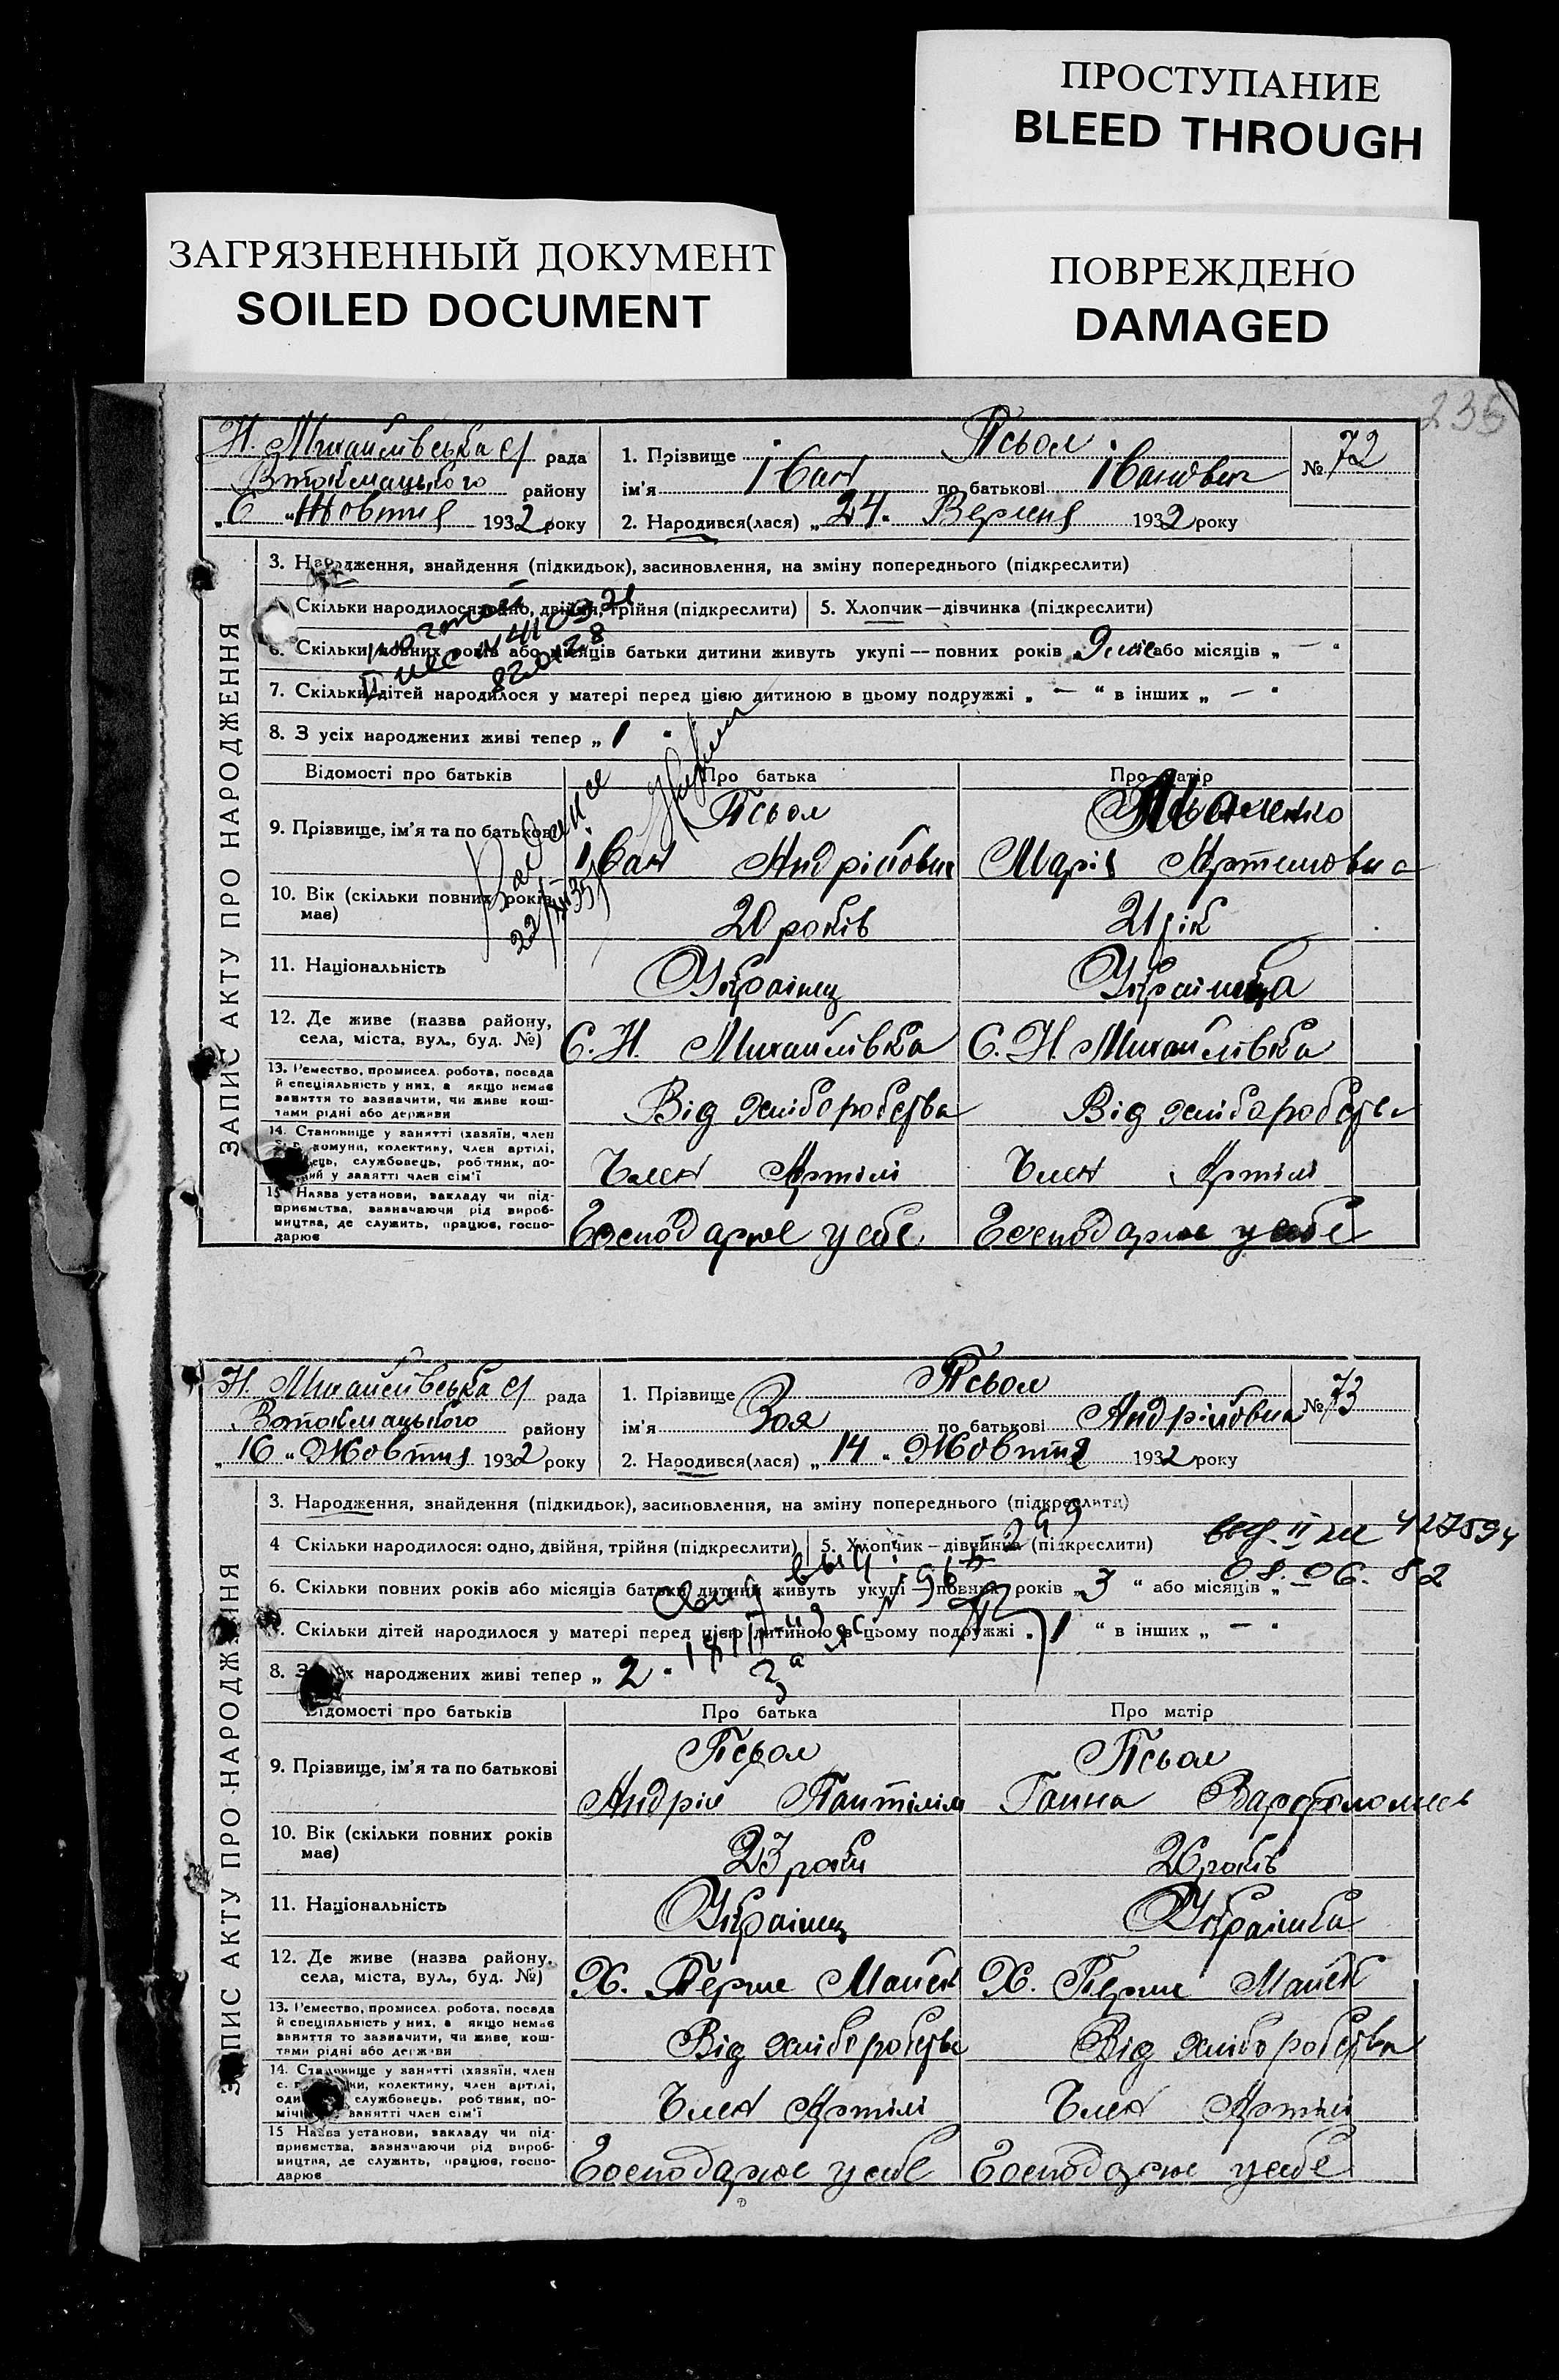 ПРОСТУПАНИЕ
BLEED THROUGH
ЗАГРЯЗНЕННЫЙ ДОКУМЕНТ
SOILED DOCUMENT
ПОВРЕЖДЕНО
DAMAGED
235
Н. Михайлівська с/ рада
Втокмацького району
„6 “ Жовтня 1932 року
1. Прізвище Псьол
ім'я Іван по батькові Іванович
№ 72
2. Народився(лася) „24“ Вересня 1932 року
ЗАПИС АКТУ ПРО НАРОДЖЕННЯ
3. Народження, знайдення (підкидьок), засиновлення, на зміну попереднього (підкреслити)
Скільки народилося: одно, двійня, трійня (підкреслити) 5. Хлопчик—дівчинка (підкреслити)
6. Скільки повних років або місяців батьки дитини живуть укупі — повних років „ або місяців „ — “
7. Скільки дітей народилося у матері перед цією дитиною в цьому подружжі „ — “ в інших „ — “
8. З усіх народжених живі тепер „ 1 “
Відомості про батьків Про батька Про матір
9. Прізвище, ім'я та по батькові Псьол
Іван Андрійович Марія Артемовна
10. Вік (скільки повних років має) 20 років 21 рік
11. Національність Українец Українка
12. Де живе (назва району, села, міста, вул., буд. №) С. Н. Михайлівка С. Н. Михайлівка
13. Ремество, промисел, робота, посада й спеціяльність у них, а якщо немає заняття то зазначити, чи живе коштами рідні або держави Від хліборобства Від хліборобства
14. Становище у занятті (хазяїн, член комуни, колективу, член артілі, службовець, робітник, у занятті член сім'ї Член Артілі Член Артілі
15 Назва установи, закладу чи підприємства, зазначаючи рід виробництва, де служить, працює, господарює Господарює у себе Господарює у себе
Н. Михайлівська с/ рада
Втокмацького району
„16 “ Жовтня 1932 року
1. Прізвище Псьол
ім'я Зоя по батькові Андрійовна
№ 73
2. Народився(лася) „14“ Жовтня 1932 року
ЗАПИС АКТУ ПРО НАРОДЖЕННЯ
3. Народження, знайдення (підкидьок), засиновлення, на зміну попереднього (підкреслити)
4 Скільки народилося: одно, двійня, трійня (підкреслити) 5. Хлопчик—дівчинка (підкреслити)
427594
08.06.82
6. Скільки повних років або місяців батьки дитини живуть укупі — повних років „3 “ або місяців „
Скільки дітей народилося у матері перед цією дитиною в цьому подружжі „ 1 “ в інших „ — “
8. З усіх народжених живі тепер „ 2 “
Відомості про батьків Про батька Про матір
9. Прізвище, ім'я та по батькові Псьол Псьол
Андрій Пантілім Ганна Варфоломеев
10. Вік (скільки повних років має) 23 роки 26 років
11. Національність Українец Українка
12. Де живе (назва району, села, міста, вул., буд. №) Х. Перше Май Х. Перше Май
13. Ремество, промисел, робота, посада й спеціяльність у них, а якщо немає заняття то зазначити, чи живе коштами рідні або держави Від хліборобства Від хліборобства
14. Становище у занятті (хазяїн, член колективу, член артілі, службовець, робітник, занятті член сім'ї Член Артілі Член Артілі
15 Назва установи, закладу чи підприємства, зазначаючи рід виробництва, де служить, працює, господарює Господарює у себе Господарює у себе